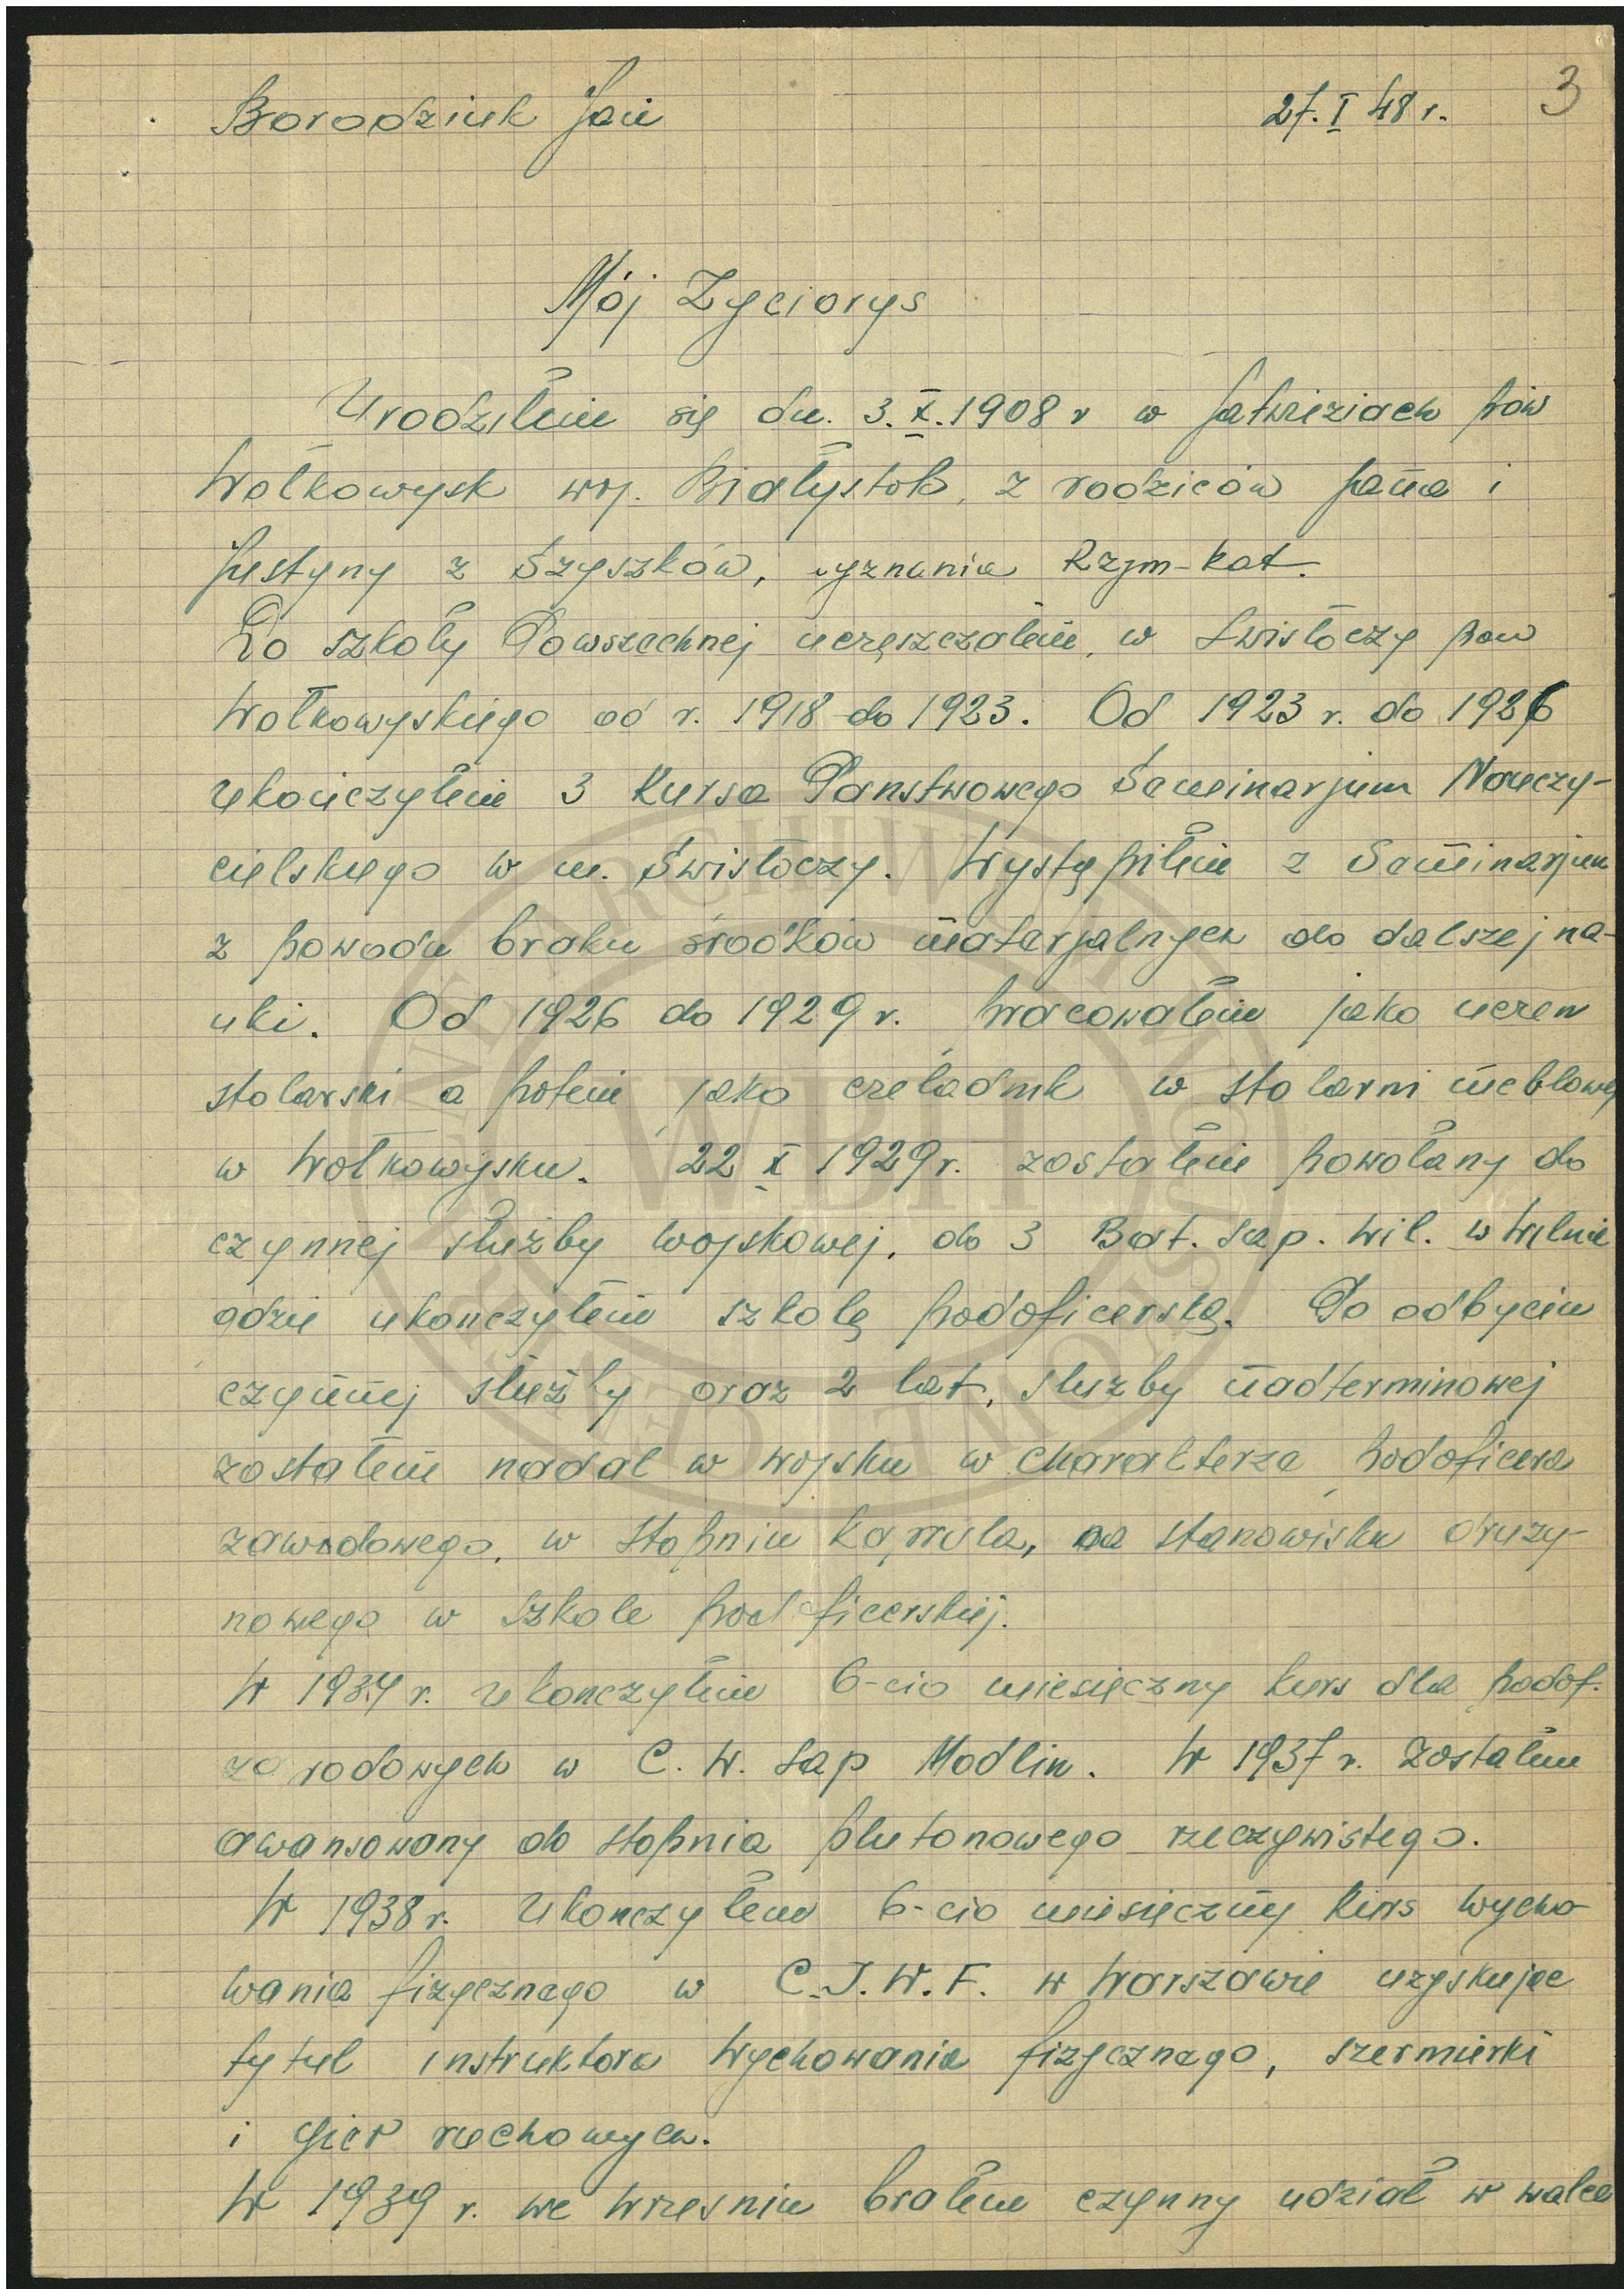 Borodziuk Jan
27. I 48 r.
3
Mój Zyciorys
Urodziłem się dn. 3. X. 1908 r w Jatwieziach pow
Wołkowysk woj. Białystok, z rodziców Jana i
Justyny z Szyszków, wyznania Rzym-kat.
Do szkoły Powszechnej uczęszczałem, w Swisłoczy pow
Wołkowyskiego od r. 1918 do 1923. Od 1923 r. do 1926
ukończyłem 3 kursa Panstwowego Seminarjum Nauczy-
cielskiego w m. Swisłoczy. Wystąpiłem z Seminarjum
z powodu braku środków materjalnych do dalszej na-
uki. Od 1926 do 1929 r. pracowałem jako uczen
stolarski a potem jako czeladnik w stolarni meblowej
w Wołkowysku. 22 X 1929 r. zostałem powołany do
czynnej służby wojskowej, do 3 Bat. Sap. Wil. w Wilnie
gdzie ukonczyłem szkołę podoficerską. Po odbyciu
czynnej służby oraz 2 lat, służby nadterminowej
zostałem nadal w wojsku w charakterze podoficera
zawodowego, w stopniu kaprala, na stanowisku druzy-
nowego w szkole podoficerskiej.
W 1934 r. ukonczyłem 6-cio miesięczny kurs dla podof.
zawodowych w C. W. Sap Modlin. W 1937 r. zostałem
awansowany do stopnia plutonowego rzeczywistego.
W 1938 r. Ukonczyłem 6-cio miesięczny kurs wycho-
wania fizycznego w C.I.W.F. w Warszawie uzyskując
tytuł instruktora Wychowania fizycznego, szermierki
i gier ruchowych.
W 1939 r. we wrzesniu brałem czynny udział w walce
WBH